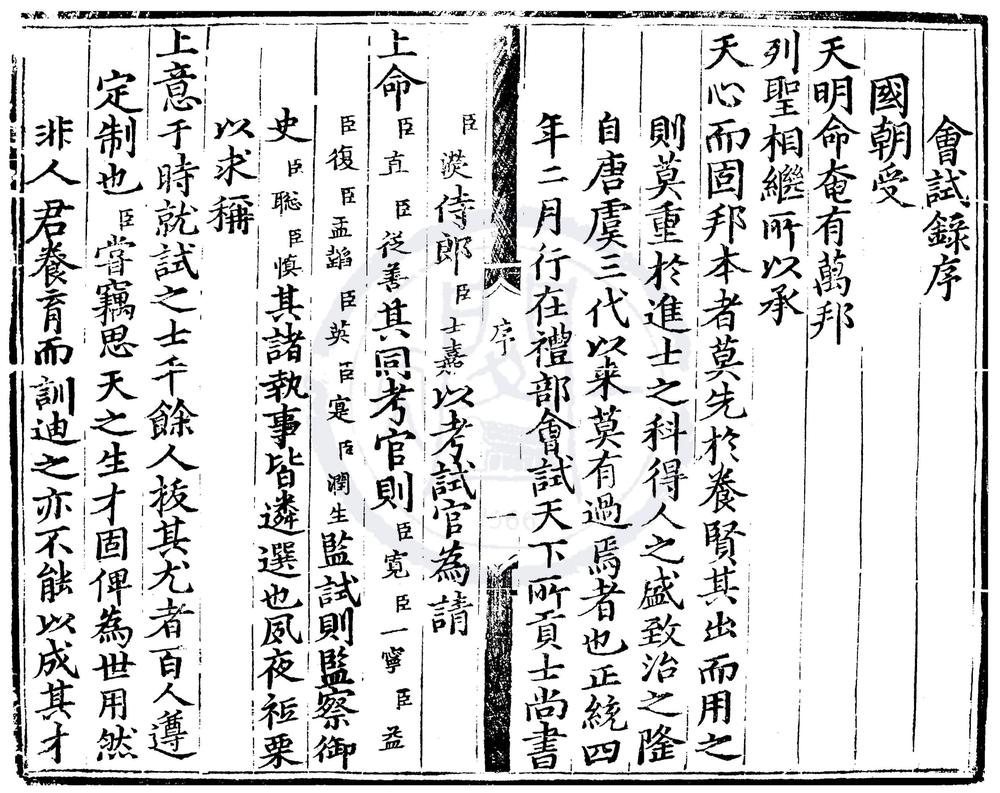 會試錄序
國朝受
天明命奄有萬邦
列聖相繼所以承
天心而固邦本者莫先於養賢其出而用之
則莫重於進士之科得人之盛致治之隆
自唐虞三代以来莫有過焉者也正統四
年二月行在禮部會試天下所貢士尚書
序
一
臣濙侍郎臣士嘉以考試官為請
上命臣直臣從善其同考官則臣寬臣一寧臣益
臣復臣孟臣英臣寔臣潤生監試則監察御
史臣聡臣慎其諸執事皆遴選也夙夜祗栗
以求稱
上意于時就試之士千餘人拔其尤者百人遵
定制也臣嘗竊思天之生才固俾為世用然
非人君養育而訓迪之亦不能以成其才